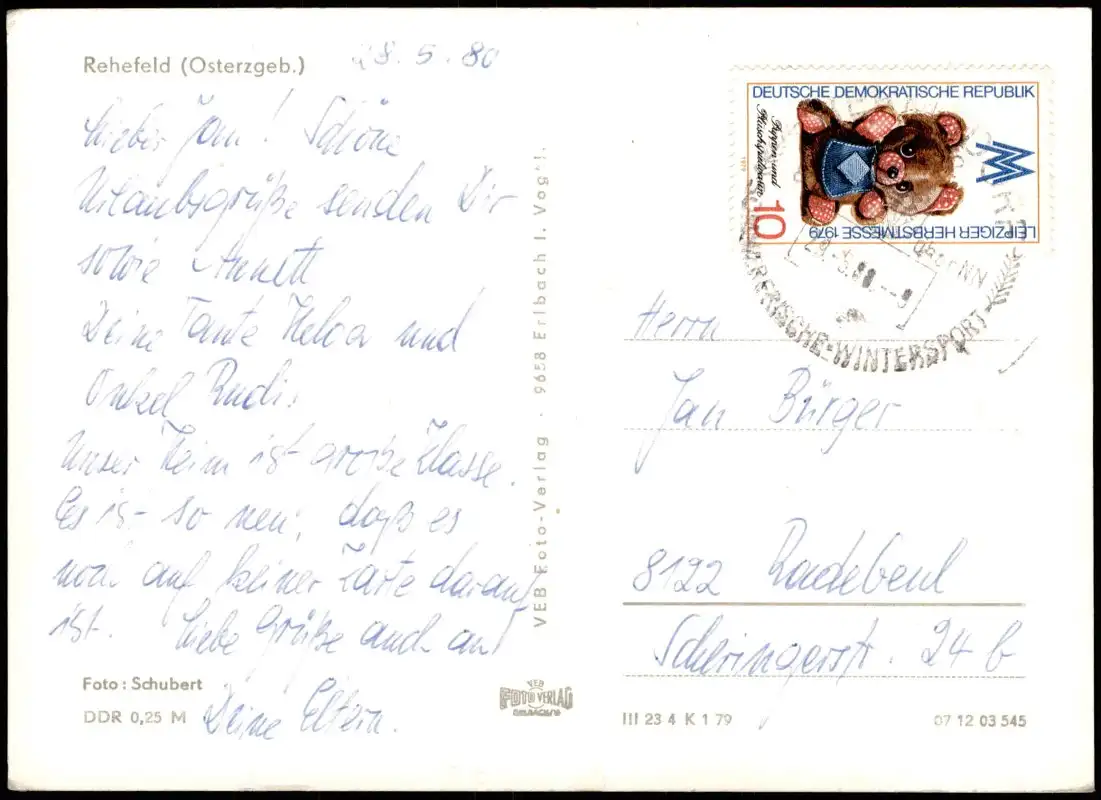 Rehefeld (Osterzgeb.)
28.5.80
Lieber Jan! Schöne
Urlaubsgrüße senden Dir
sowie Annett
Deine Tante Helga und
Onkel Rudi.
Unser Heim ist große Klasse.
Es ist so neu, daß es
noch auf keiner Karte darauf
ist. Liebe Grüße auch an
Deine Eltern.
Foto: Schubert
DDR 0,25 M
VEB Foto-Verlag · 9658 Erlbach i. Vogtl.
VEB
FOTO VERLAG
ERLBACH
DEUTSCHE DEMOKRATISCHE REPUBLIK
Puppen und
Plüschspielwaren
1979
10
LEIPZIGER HERBSTMESSE 1979
29.-5.80.--9
WINTERSPORT
Herrn
Jan Bürger
8122 Radebeul
Scheringerstr. 24 b
III 23 4 K 1 79
07 12 03 545